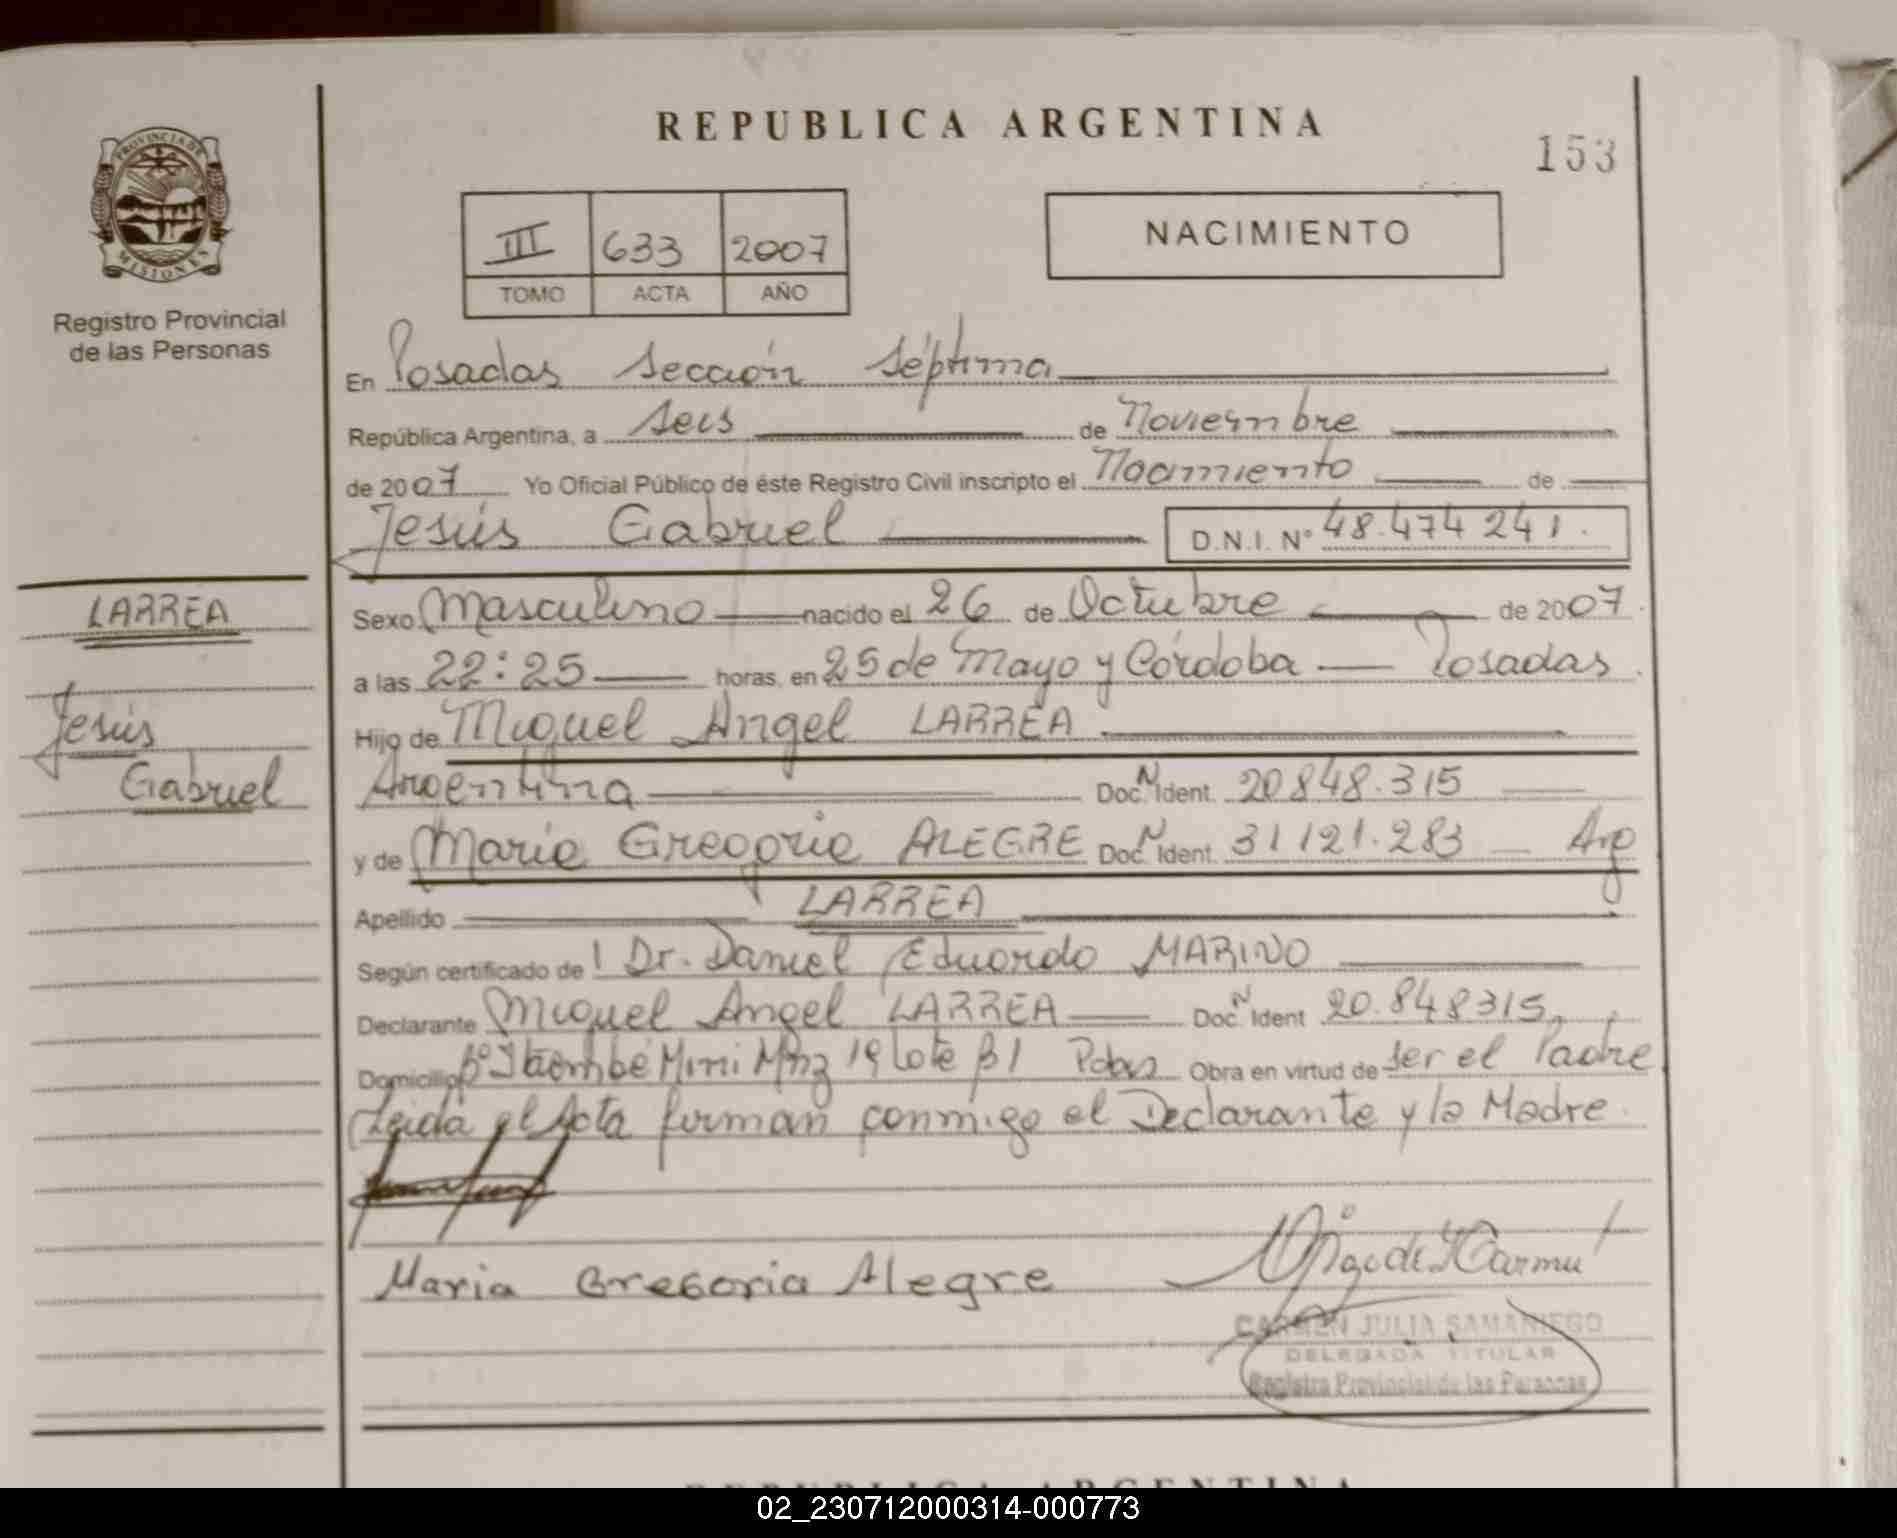 REPUBLICA ARGENTINA
153
PROVINCIA DE
MISIONES
Registro Provincial
de las Personas
III 633 2007
TOMO ACTA AÑO
NACIMIENTO
En Posadas Sección Séptima
República Argentina, a Seis de Noviembre
de 2007 Yo Oficial Público de éste Registro Civil inscripto el Nacimiento de
Jesús Gabriel D.N.I. Nº 48.474 241.
LARREA
Jesús
Gabriel
Sexo Masculino nacido el 26 de Octubre de 2007.
a las 22:25 horas, en 25 de Mayo y Córdoba — Posadas.
Hijo de Miguel Angel LARREA
Argentina Doc. N Ident. 20848.315
y de María Gregoria ALEGRE Doc. N Ident. 31121.283 — Arg
Apellido LARREA
Según certificado de Dr. Daniel Eduardo MARINO
Declarante Miguel Angel LARREA Doc. N Ident 20.848315
Domicilio Bº Itaembé Mini Mnz 19 Lote 31 Pdas Obra en virtud de ser el Padre
Leida el Acta firman conmigo el Declarante y la Madre.
Maria Gregoria Alegre
CARMEN JULIA SAMANIEGO
DELEGADA TITULAR
Registro Provincial de las Personas
REPUBLICA ARGENTINA
02_230712000314-000773